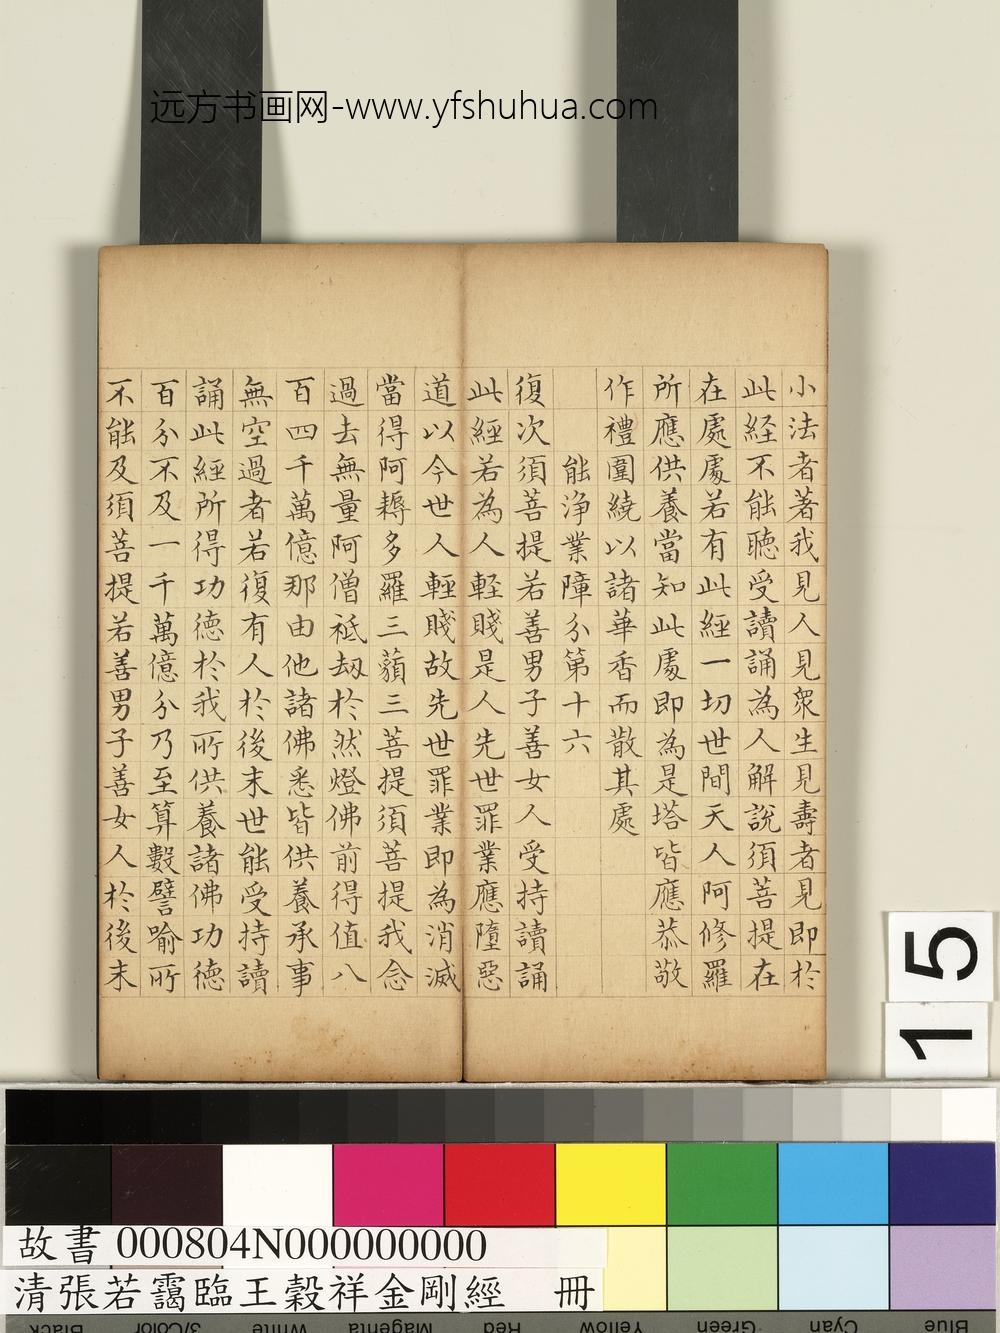 远方书画网-www.yfshuhua.com
小法者著我見人見衆生見壽者見即於
此経不能聽受讀誦為人解說須菩提在
在處處若有此經一切世間天人阿修羅
所應供養當知此處即為是塔皆應恭敬
作禮圍繞以諸華香而散其處
能浄業障分第十六
復次須菩提若善男子善女人受持讀誦
此經若為人軽賤是人先世罪業應墮惡
道以今世人輕賤故先世罪業即為消滅
當得阿耨多羅三藐三菩提須菩提我念
過去無量阿僧祇刼於然燈佛前得值八
百四千萬億那由他諸佛悉皆供養承事
無空過者若復有人於後末世能受持讀
誦此經所得功德於我所供養諸佛功德
百分不及一千萬億分乃至算數譬喻所
不能及須菩提若善男子善女人於後末
15
故書 000804N000000000
清張若靄臨王穀祥金剛經 冊
Black 3/Color White Magenta Red Yellow Green Cyan Blue